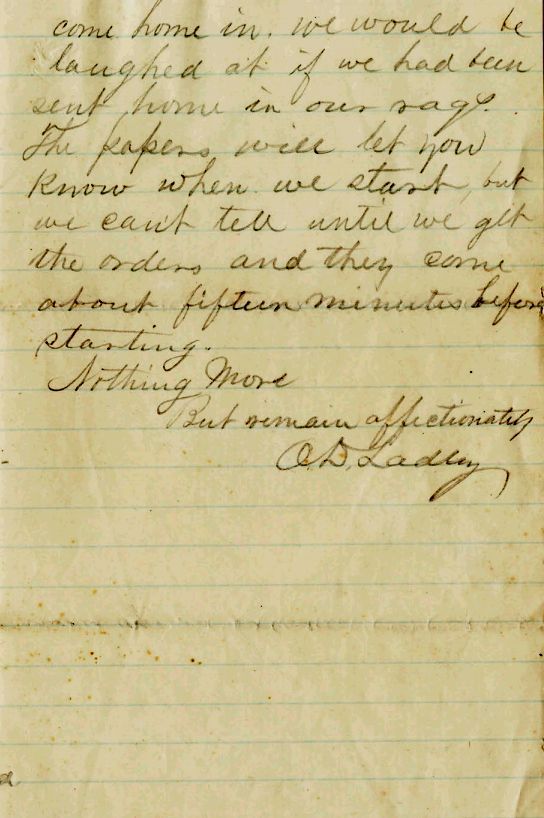 come home in. we would be
laughed at if we had been
sent home in our rags.
The papers will let you
know when we start, but
we can't tell until we get
the orders and they come
about fifteen minutes before
starting.
Nothing More
But remain affectionately
O D Ladley